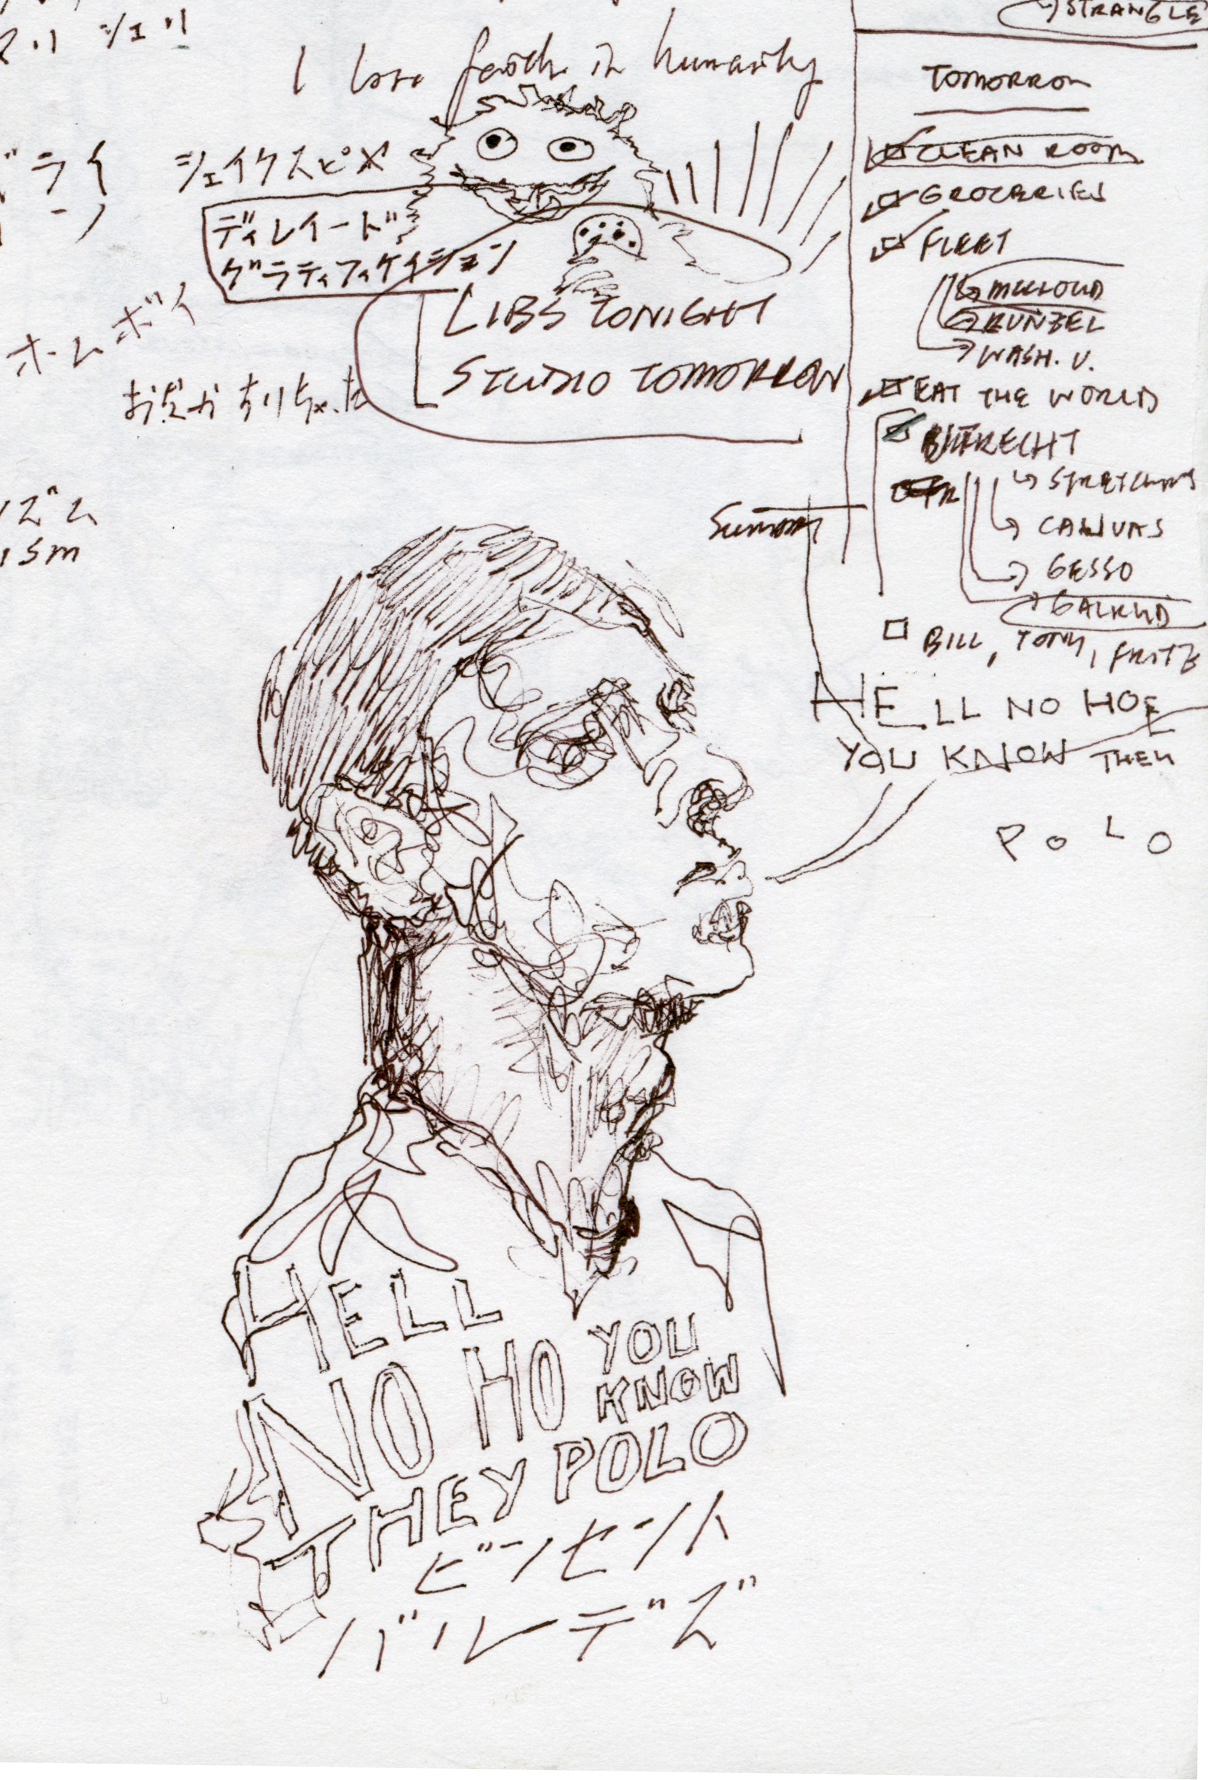 シェリ
STRANGLE
I lose faith in humanity
TOMORROW
CLEAN ROOM
GROCERIES
FLEET
MCCLOUD
RUNZEL
WASH. U.
EAT THE WORLD
UTRECHT
STRETCHERS
CANVAS
GESSO
GALKYD
BILL, TONY, FRITZ
ライ
シェイクスピア
ディレイード
グラティフィケイション
LIBS TONIGHT
STUDIO TOMORROW
ホームボイ
ズム
ism
Sunday
HELL NO HOE
YOU KNOW THEY
POLO
HELL
NO HO YOU
KNOW
THEY POLO
ビンセント
バルデズ